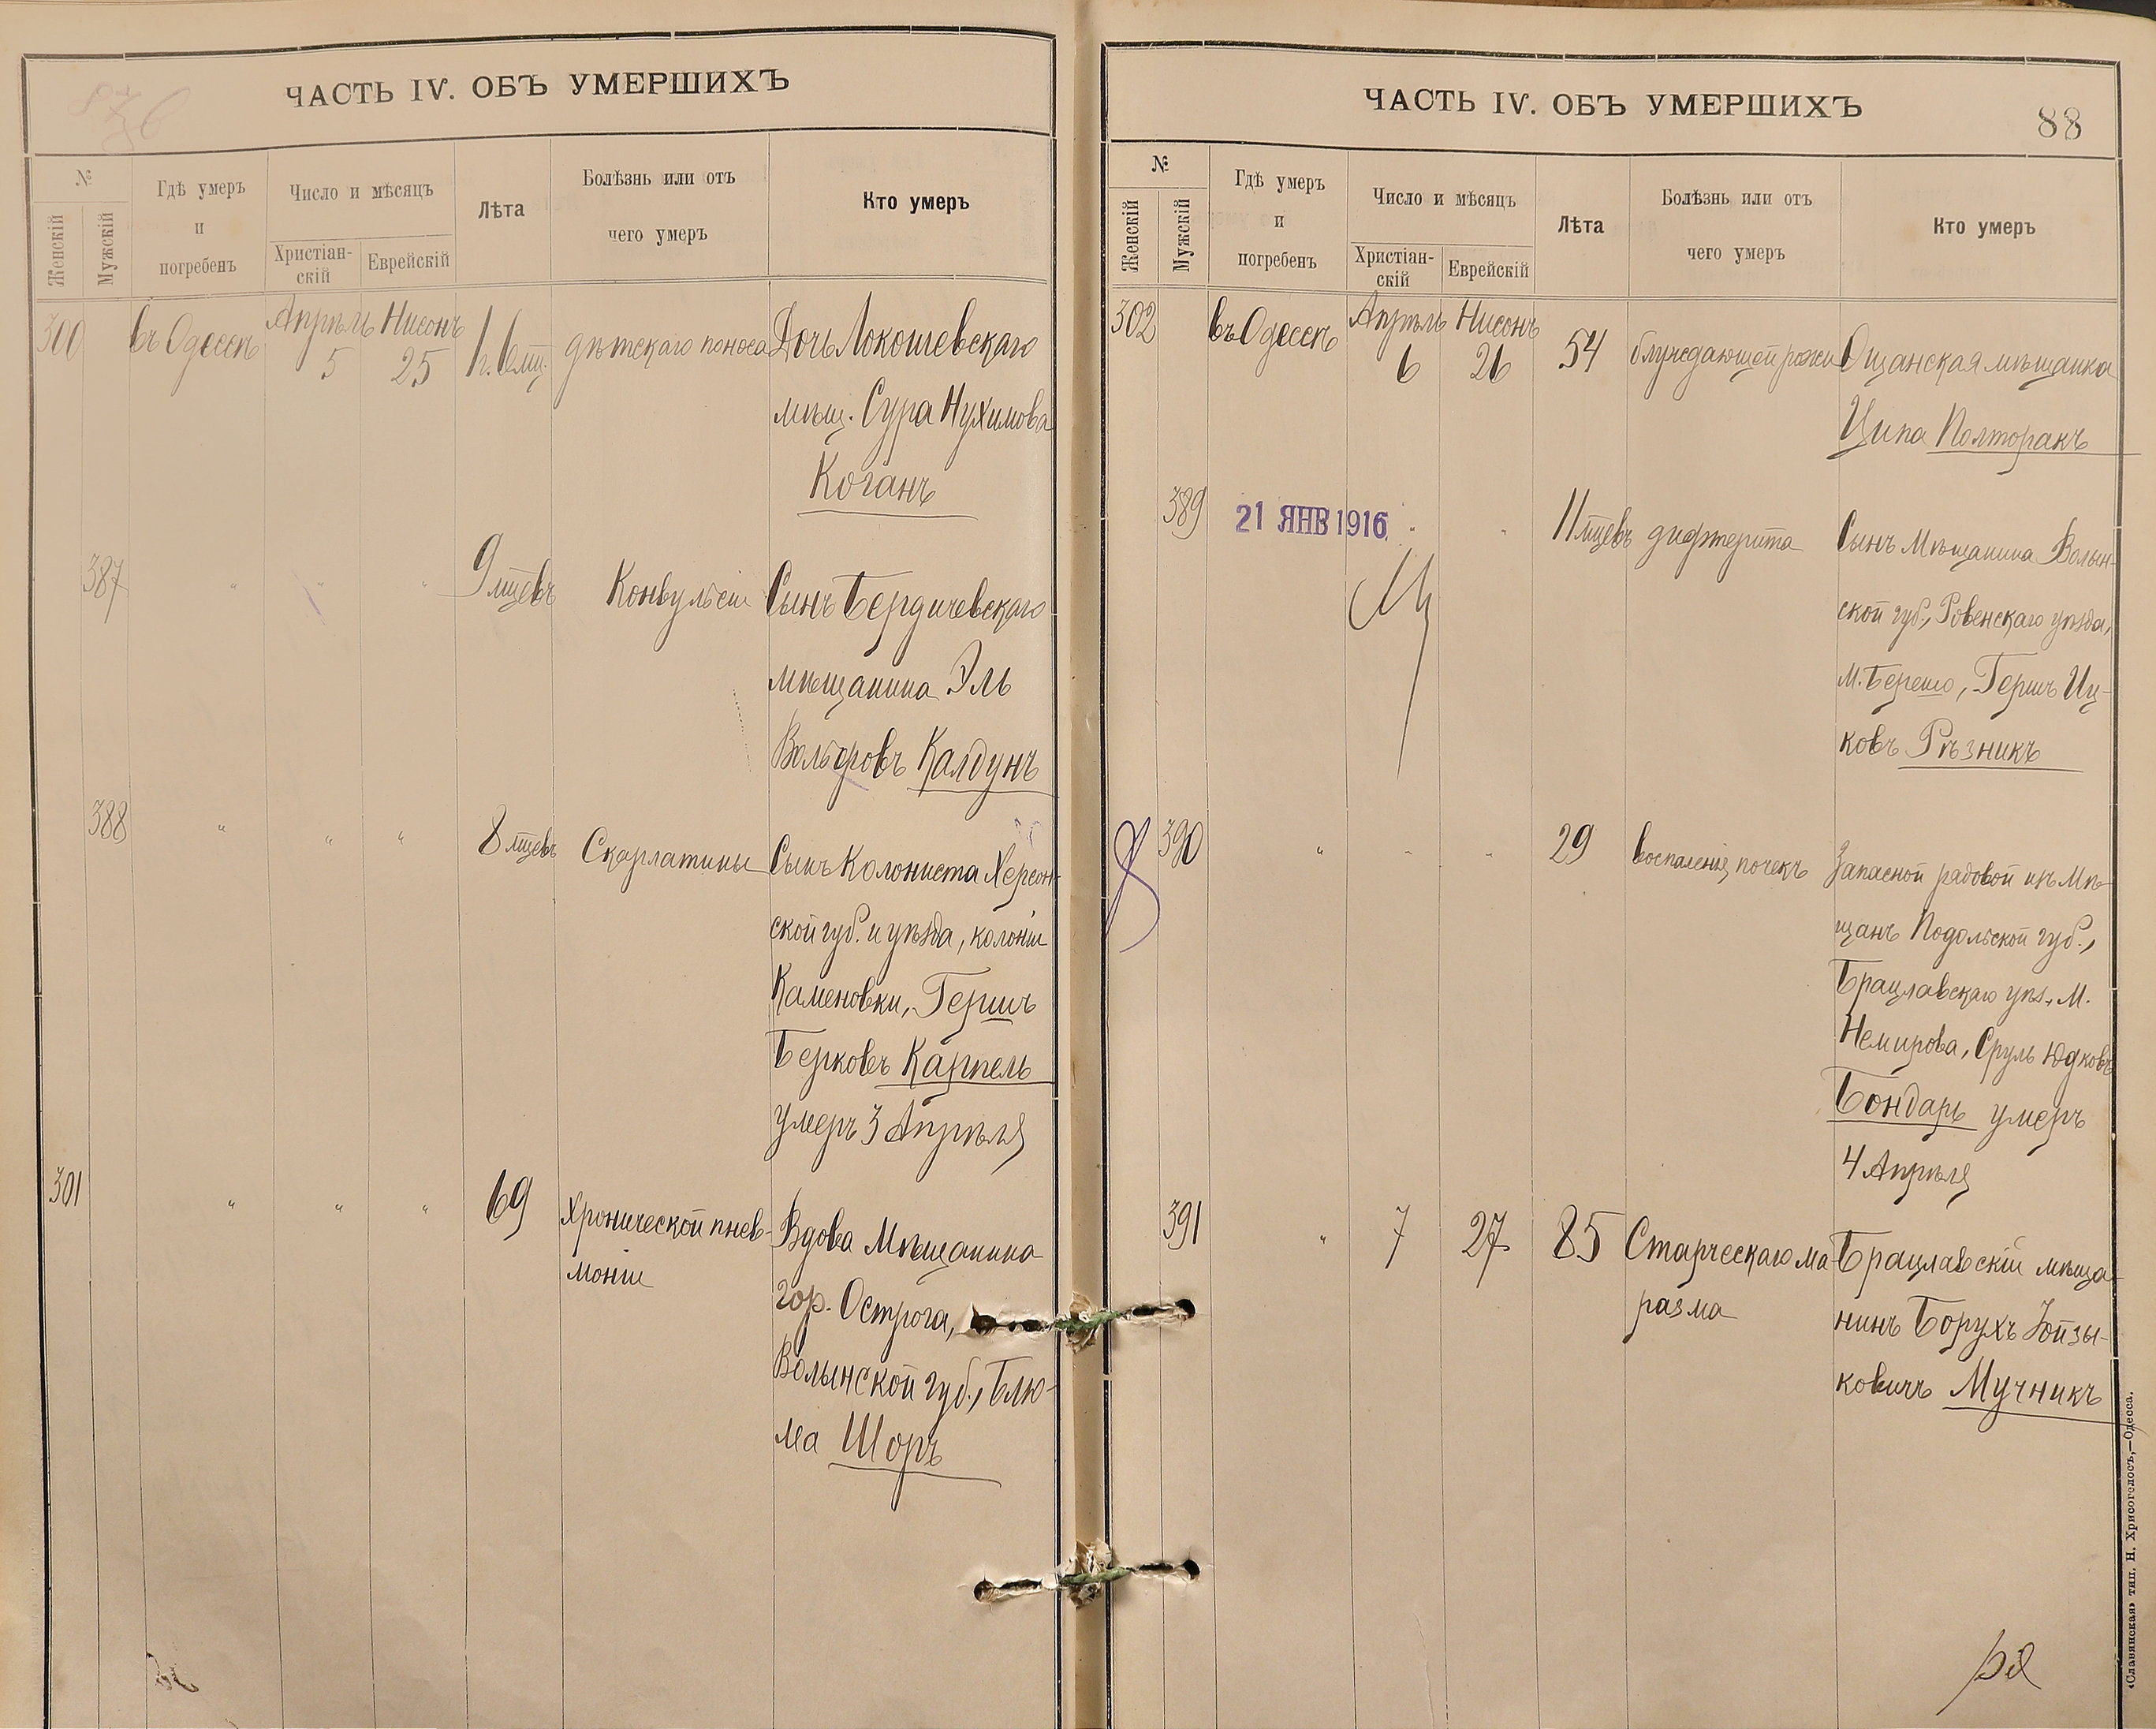 ЧАСТЬ IV. ОБЪ УМЕРШИХЪ
№
Женскій
Мужскій
Гдѣ умеръ
и
погребенъ
Число и мѣсяцъ
Христіан-
скій
Еврейскій
Лѣта
Болѣзнь или отъ
чего умеръ
Кто умеръ
300 въ Одессѣ Апрѣль 5 Нисонъ 25 1 г. 6 мц. дѣтскаго поноса Дочь Локошевскаго
мѣщ. Сура Нухимова
Коганъ
387 " " " 9 мцевъ Конвульсіи Сынъ Бердичевскаго
мѣщанина Эль
Вольфовъ Калдунъ
388 " " " 8 мцевъ Скарлатины Сынъ Колониста Херсон-
ской губ. и уѣзда, колоніи
Каменовки, Гершъ
Берковъ Карпель
умеръ 3 Апрѣля
301 " " " 69 Хронической пнев-
моніи
Вдова Мѣщанина
гор. Острога,
Волынской губ., Блю-
ма Шоръ
ЧАСТЬ IV. ОБЪ УМЕРШИХЪ
88
№
Женскій
Мужскій
Гдѣ умеръ
и
погребенъ
Число и мѣсяцъ
Христіан-
скій
Еврейскій
Лѣта
Болѣзнь или отъ
чего умеръ
Кто умеръ
302 въ Одессѣ Апрѣль 6 Нисонъ 26 54 блуждающей рожи Ощанская мѣщанка
Ципа Полторакъ
389 21 ЯНВ 1916 " " 11 мцевъ дифтерита Сынъ Мѣщанина Волын-
ской губ., Ровенскаго уѣзда,
М. Березно, Гершъ Иц-
ковъ Рѣзникъ
390 " " " 29 воспаленія почекъ Запасной рядовой изъ Мѣ-
щанъ Подольской губ.,
Брацлавскаго уѣз., М.
Немирова, Сруль Юдковъ
Бондарь умеръ
4 Апрѣля
391 " 7 27 85 Старческаго ма-
разма
Брацлавскій мѣща-
нинъ Борухъ Іойзы-
ковичъ Мучникъ
«Славянская» тип. Н. Хрисогелосъ,—Одесса.